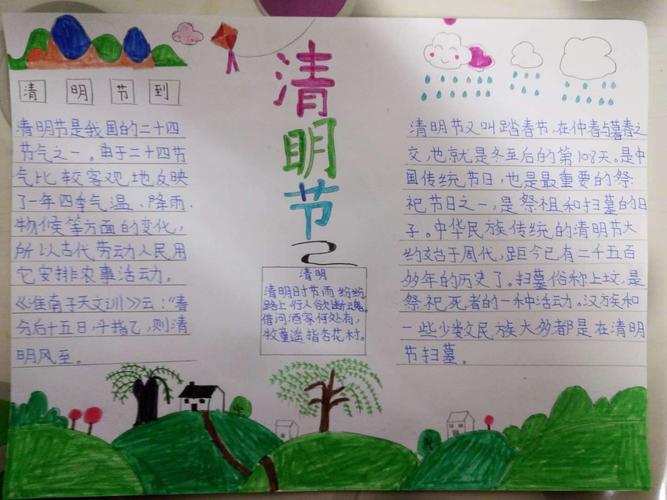 清明节到
清明节是我国的二十四
节气之一。由于二十四节
气比较客观地反映
了一年四季气温、降雨、
物候等方面的变化，
所以古代劳动人民用
它安排农事活动。
《淮南子天文训》云：“春
分后十五日，斗指乙，则清
明风至。
清明节
清明
清明时节雨纷纷
路上行人欲断魂。
借问酒家何处有，
牧童遥指杏花村。
清明节又叫踏春节，在仲春与暮春之
交，也就是冬至后的第108天。是中
国传统节日，也是最重要的祭
祀节日之一，是祭祖和扫墓的日
子。中华民族传统的清明节大
约始于周代，距今已有二千五百
多年的历史了。扫墓俗称上坟，是
祭祀死者的一种活动。汉族和
一些少数民族大多都是在清明
节扫墓。